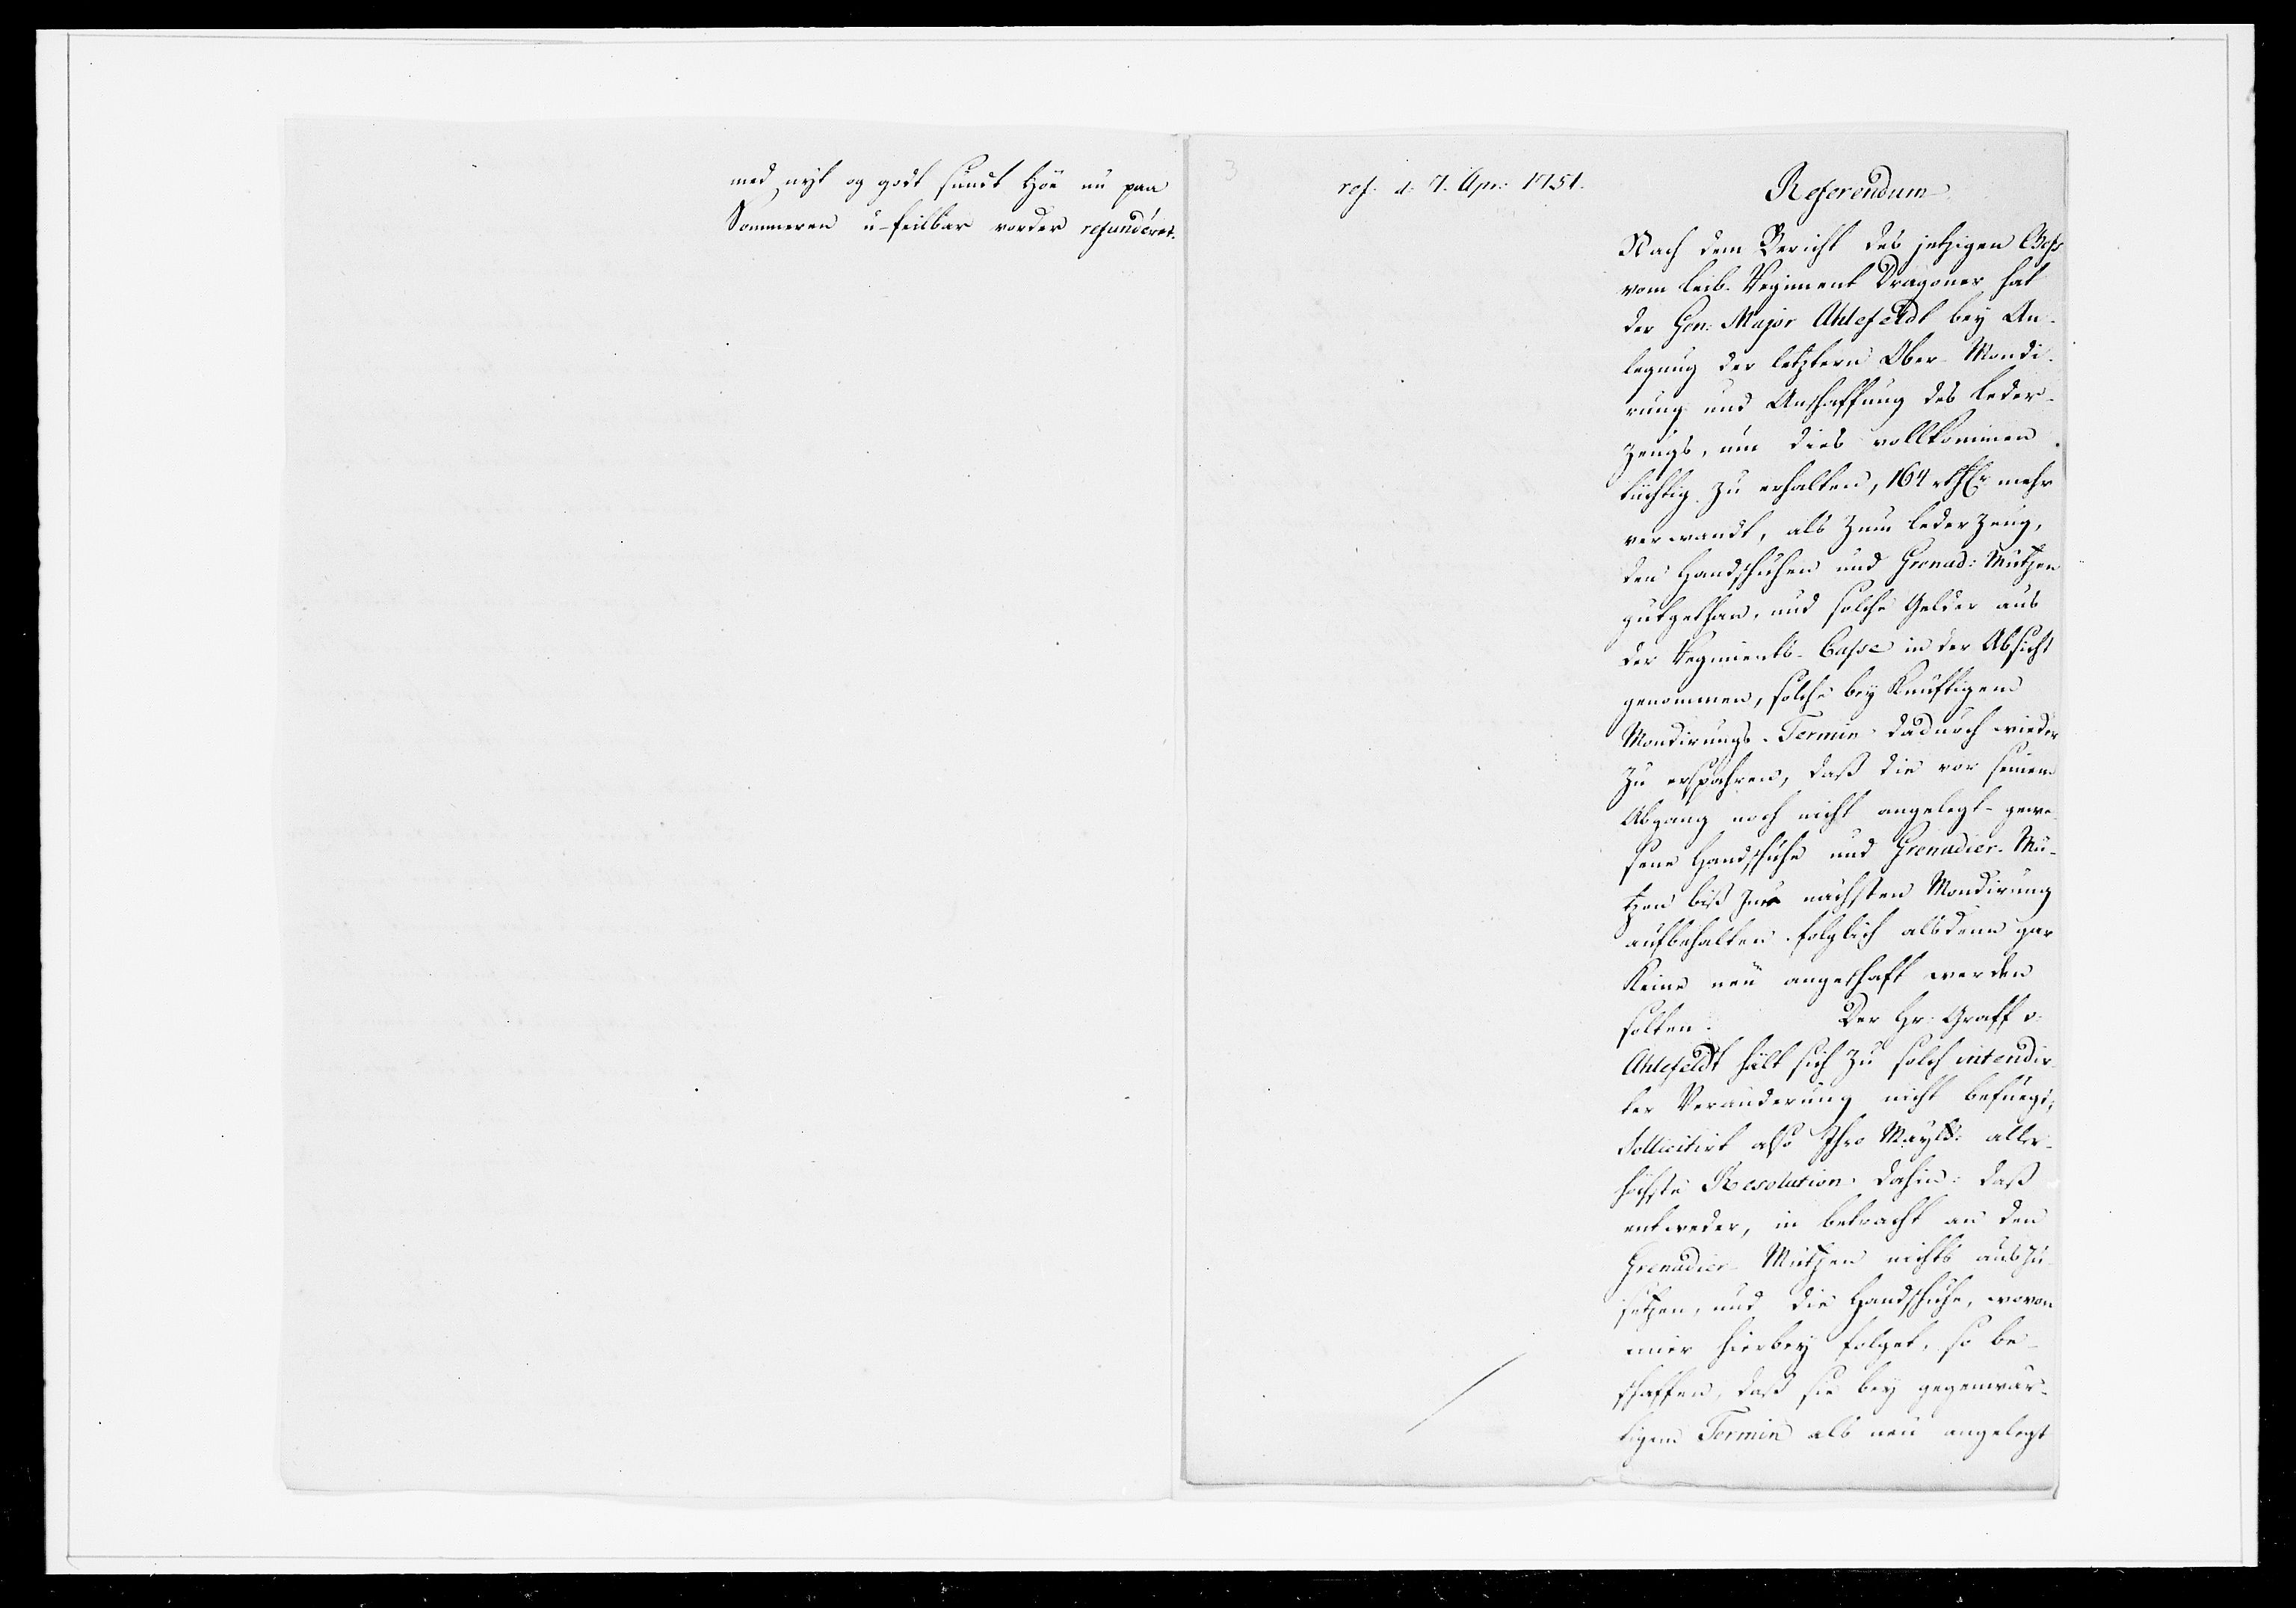 med nyt og godt sundt Höe nu paa
Sommeren u-feilbar vorder refunderet.
3
ref. d. 7. Apr: 1751.
Referendum
Nach dem Bericht des jetzigen Chefs
vom Leib-Regiment Dragoner hat
der Gen: Major Ahlefeldt bey An-
legung der letztern Ober-Mondi-
rung und Anschaffung des Leder-
zeugs, um dies vollkommen
tüchtig zu erhalten, 164 rthlr mehr
verwandt, als zum Lederzeug,
den Handschuhen und Grenad: Mützen
gutgethan, und solche Gelder aus
der Regiments-Casse in der Absicht
genommen, solche bey künftigem
Mondirungs-Termin dadurch wieder
zu erspahren, daß die vor seinem
Abgang noch nicht angelegt-gewe-
sene Handschuhe und Grenadier-Mü-
tzen biß zur nächsten Mondirung
aufbehalten folglich alsdenn gar
keine neu angeschaft werden
solten. Der Hr. Graff v.
Ahlefeldt hält sich zu solch intendir-
ter Veränderung nicht befuegt,
sollicitirt also Ihro Mayts: aller-
höchste Resolution dahin: daß
entweder, in betracht an den
Grenadier-Mützen nichts auszu-
setzen, und die Handschuhe, wovon
einer hierbey folget, so be-
schaffen, daß sie bey gegenwär-
tigem Termin als neu angelegt